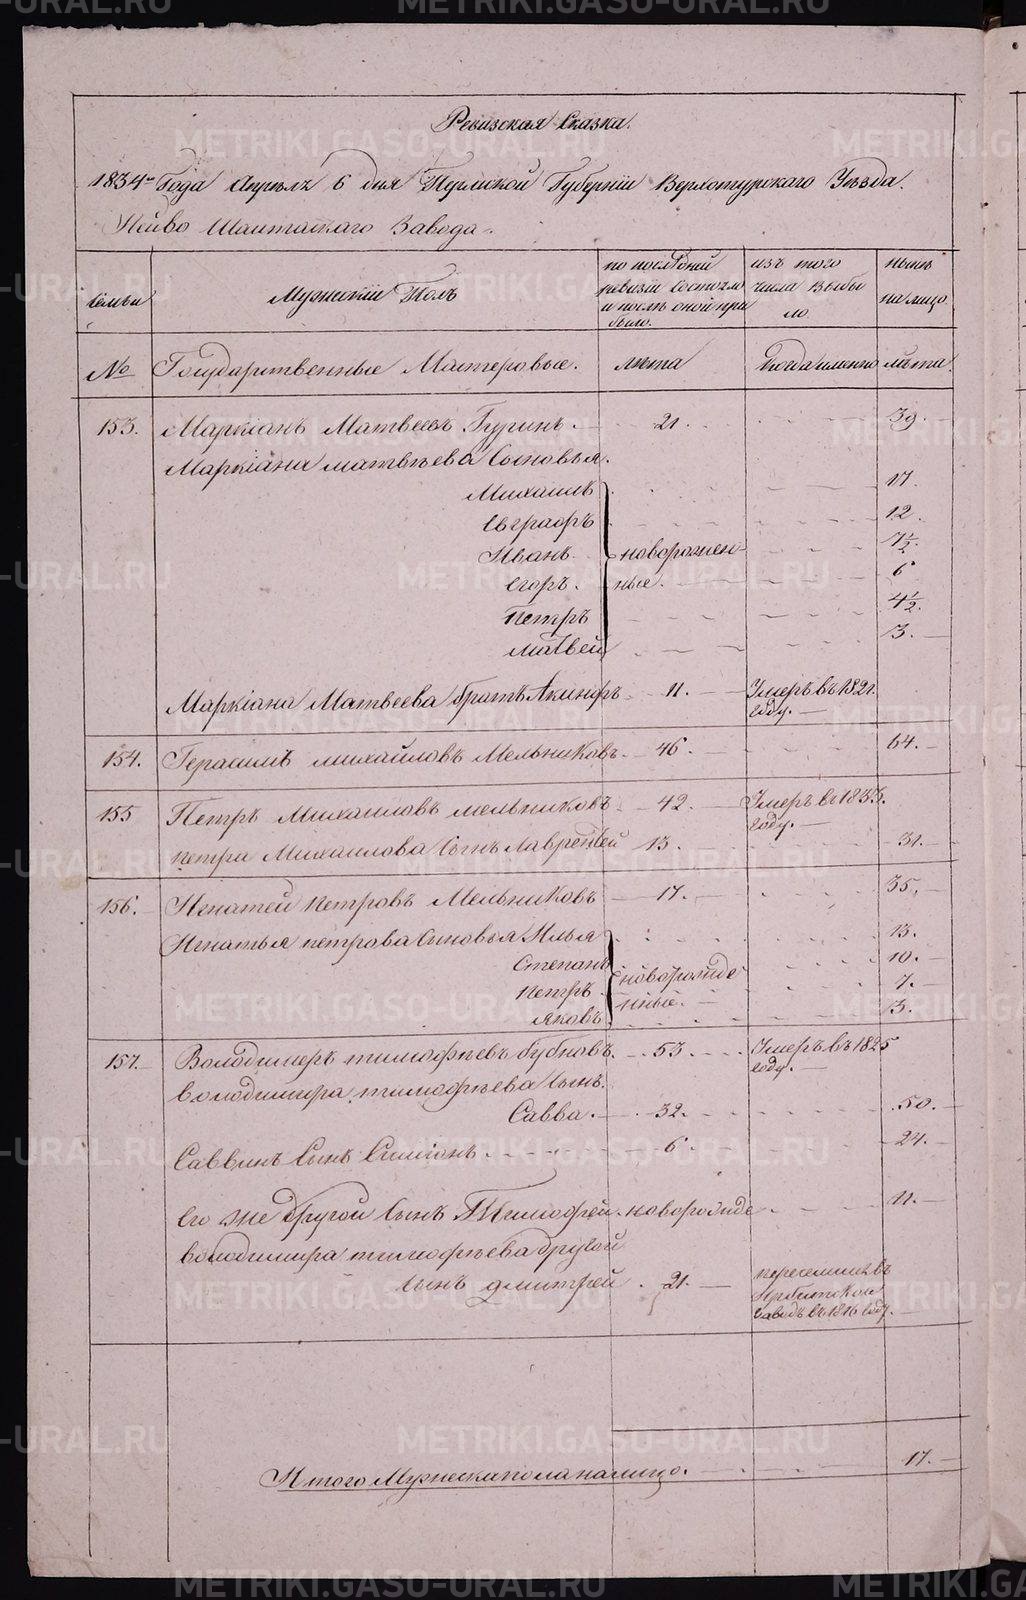 Ревизская Сказка.
1834го Года Апреля 6 дня Пермской Губернiи Верхотурскаго Уезда.
Нейво Шайтанскаго Завода.
Семьи
Мужескiй Полъ
по последней ревизiи состояло и после оной при было.
изъ того числа выбы ло.
ныне на лицо.
№ Государственные Мастеровые. лета Когда именно лета
153. Маркiанъ Матвеевъ Гуринъ. 21. 39.
Маркiана матвѣева Сыновья.
Михаилъ 17.
Евграфъ 12.
Иванъ новорожден- 7 1/2.
Егоръ. ные. 6
Петръ 4 1/2.
Матвей 3.
Маркiана Матвеева братъ Акинфъ 11. Умеръ въ 1821.
году.
154. Герасимъ михайловъ Мельниковъ. 46. 64.
155 Петръ Михаиловъ мельниковъ 42. Умеръ въ 1833.
году.
петра Михаилова Сынъ Лаврентей 13. 31.
156. Игнатей Петровъ Мельниковъ 17. 35.
Игнатья петрова Сыновья Илья 13.
Степанъ 10.
Петръ новорожде 7.
Яковъ нные. 3.
157. Володимеръ тимофѣевъ бубновъ. 53. Умеръ въ 1825
году.
Володимира тимофѣева Сынъ.
Савва. 32. 50.
Саввинъ Сынъ Симiонъ. 6. 24.
Его же другой Сынъ Тимофей. новорожде 11.
володимира тимофѣева другой
Сынъ дмитрей 21. переселился въ
Ирбитской
Заводъ въ 1816 году.
Итого Мужеска пола на лицо. 17.
METRIKI.GASO-URAL.RU